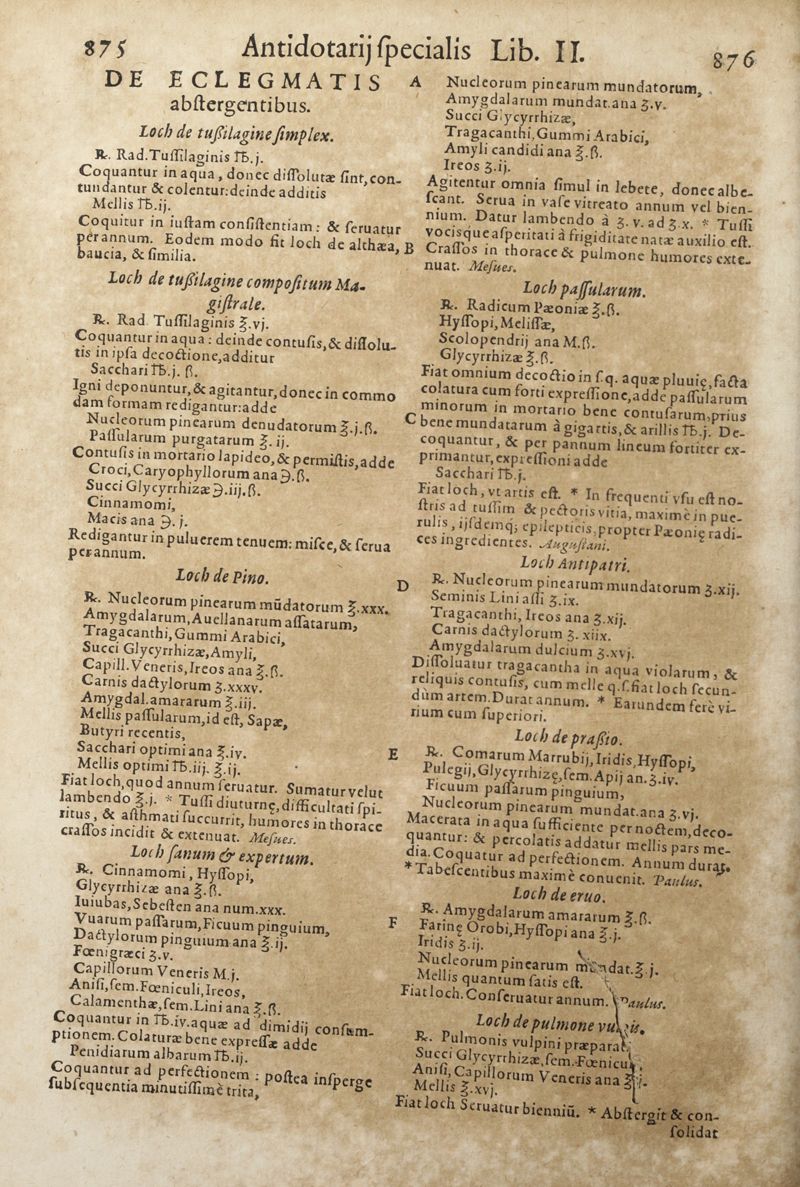 875 Antidotarij ſpecialis Lib. II. 876
DE ECLEGMATIS
abſtergentibus.
Loch de tußilagine ſimplex.
℞. Rad.Tuſſilaginis ℔.j.
Coquantur in aqua, donec diſſolutæ ſint, con-
tundantur & colentur:deinde additis
Mellis ℔.ij.
Coquitur in iuſtam conſiſtentiam: & ſeruatur
per annum. Eodem modo fit loch de althæa,
baucia, & ſimilia.
Loch de tußilagine compoſitum Ma-
giſtrale.
℞. Rad Tuſſilaginis ℥.vj.
Coquantur in aqua: deinde contuſis, & diſſolu-
tis in ipſa decoctione, additur
Sacchari ℔.j. ß.
Igni deponuntur, & agitantur, donec in commo
dam formam redigantur:adde
Nucleorum pinearum denudatorum ℥.j.ß.
Paſſularum purgatarum ℥. ij.
Contuſis in mortario lapideo, & permiſtis, adde
Croci, Caryophyllorum ana ℈.ß.
Succi Glycyrrhizæ ℈.iij.ß.
Cinnamomi,
Macis ana ℈. j.
Redigantur in puluerem tenuem: miſce, & ſerua
per annum.
Loch de Pino.
℞. Nucleorum pinearum mūdatorum ℥.xxx.
Amygdalarum, Auellanarum aſſatarum,
Tragacanthi, Gummi Arabici,
Succi Glycyrrhizæ, Amyli,
Capill. Veneris, Ireos ana ℥.ß.
Carnis dactylorum ʒ.xxxv.
Amygdal. amararum ℥.iij.
Mellis paſſularum, id eſt, Sapæ,
Butyri recentis,
Sacchari optimi ana ℥.iv.
Mellis optimi ℔.iij. ℥.ij.
Fiat loch, quod annum ſeruatur. Sumatur velut
lambendo ℥.j. * Tuſſi diuturnę, difficultati ſpi-
ritus, & aſthmati ſuccurrit, humores in thorace
craſſos incidit & extenuat. Meſues.
Loch ſanum & expertum.
℞. Cinnamomi, Hyſſopi,
Glycyrrhizæ ana ℥.ß.
Iuiubas, Sebeſten ana num.xxx.
Vuarum paſſarum, Ficuum pinguium,
Dactylorum pinguium ana ℥.ij.
Fœnigræci ʒ.v.
Capillorum Veneris M.j.
Aniſi, ſem. Fœniculi, Ireos,
Calamenthæ, ſem. Lini ana ℥.ß.
Coquantur in ℔.iv. aquæ ad dimidij conſum-
ptionem. Colaturæ bene expreſſæ adde
Penidiarum albarum ℔.ij.
Coquantur ad perfectionem: poſtea inſperge
ſubſequentia minutiſſimè trita,
A Nucleorum pinearum mundatorum,
Amygdalarum mundat. ana ʒ.v.
Succi Glycyrrhizæ,
Tragacanthi, Gummi Arabici,
Amyli candidi ana ℥.ß.
Ireos ʒ.ij.
Agitentur omnia ſimul in lebete, donec albe-
ſcant. Serua in vaſe vitreato annum vel bien-
nium. Datur lambendo à ʒ.v. ad ʒ x. * Tuſſi
vocisque aſperitati à frigiditate natæ auxilio eſt.
B Craſſos in thorace & pulmone humores exte-
nuat. Meſues.
Loch paſſularum.
℞. Radicum Pæoniæ ℥.ß.
Hyſſopi, Meliſſæ,
Scolopendrij ana M.ß.
Glycyrrhizæ ℥.ß.
Fiat omnium decoctio in ſ.q. aquæ pluuię, facta
colatura cum forti expreſſione, adde paſſularum
minorum in mortario bene contuſarum, prius
C bene mundatarum à gigartis, & arillis ℔.j. De-
coquantur, & per pannum lineum fortiter ex-
primantur, expreſſioni adde
Sacchari ℔.j.
Fiat loch, vt artis eſt. * In frequenti vſu eſt no-
ſtris ad tuſſim & pectoris vitia, maximè in pue-
rulis, ijſdemq; epilepticis, propter Pæonię radi-
ces ingredientes. Auguſtani.
Loch Antipatri.
D ℞. Nucleorum pinearum mundatorum ʒ.xij.
Seminis Lini aſſi ʒ.ix.
Tragacanthi, Ireos ana ʒ.xij.
Carnis dactylorum ʒ. xiix.
Amygdalarum dulcium ʒ.xvj.
Diſſoluatur tragacantha in aqua violarum, &
reliquis contuſis, cum melle q.ſ. fiat loch ſecun-
dum artem. Durat annum. * Earundem ferè vi-
rium cum ſuperiori.
Loch de praßio.
E ℞. Comarum Marrubij, Iridis, Hyſſopi,
Pulegij, Glycyrrhizę, ſem. Apij an. ʒ.iv.
Ficuum paſſarum pinguium,
Nucleorum pinearum mundat. ana ʒ.vj.
Macerata in aqua ſufficiente per noctem, deco-
quantur: & percolatis addatur mellis pars me-
dia. Coquatur ad perfectionem. Annum durat.
* Tabeſcentibus maximè conuenit. Paulus.
Loch de eruo.
F ℞. Amygdalarum amararum ℥.ß.
Farinę Orobi, Hyſſopi ana ℥.j.
Iridis ʒ.ij.
Nucleorum pinearum mundat. ℥ j.
Mellis quantum ſatis eſt.
Fiat loch. Conſeruatur annum. Paulus.
Loch de pulmone vulpis.
℞. Pulmonis vulpini præparati,
Succi Glycyrrhizæ, ſem. Fœniculi,
Aniſi, Capillorum Veneris ana ℥.j.
Mellis ℥.xvj.
Fiat loch Seruatur bienniū. * Abſtergit & con-
ſolidat